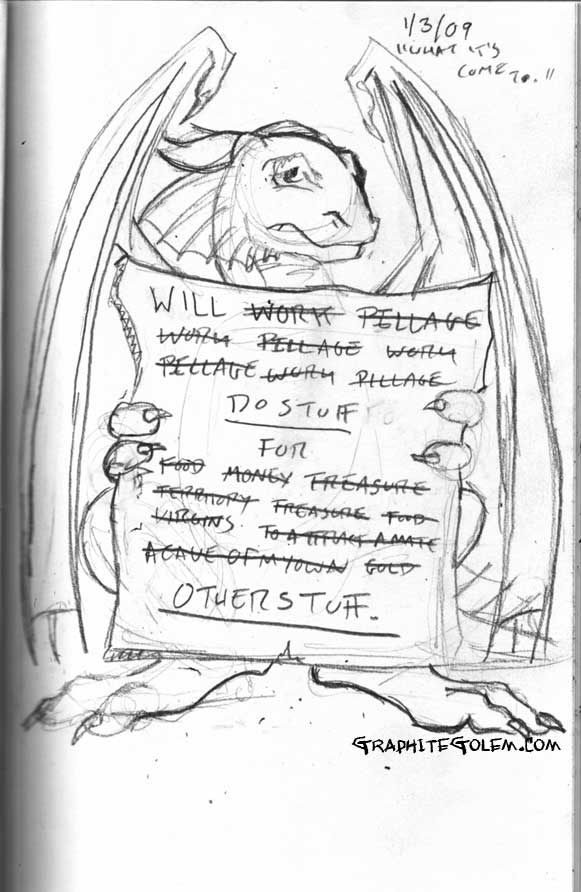 1/3/09
"WHAT IT'S
COME TO."
WILL WORK PILLAGE
WORK PILLAGE WORK
PILLAGE WORK PILLAGE
DO STUFF
FOR
FOOD MONEY TREASURE
TERRITORY TREASURE FOOD
VIRGINS TO ATTRACT A MATE
A CAVE OF MY OWN GOLD
OTHER STUFF.
GRAPHITEGOLEM.COM